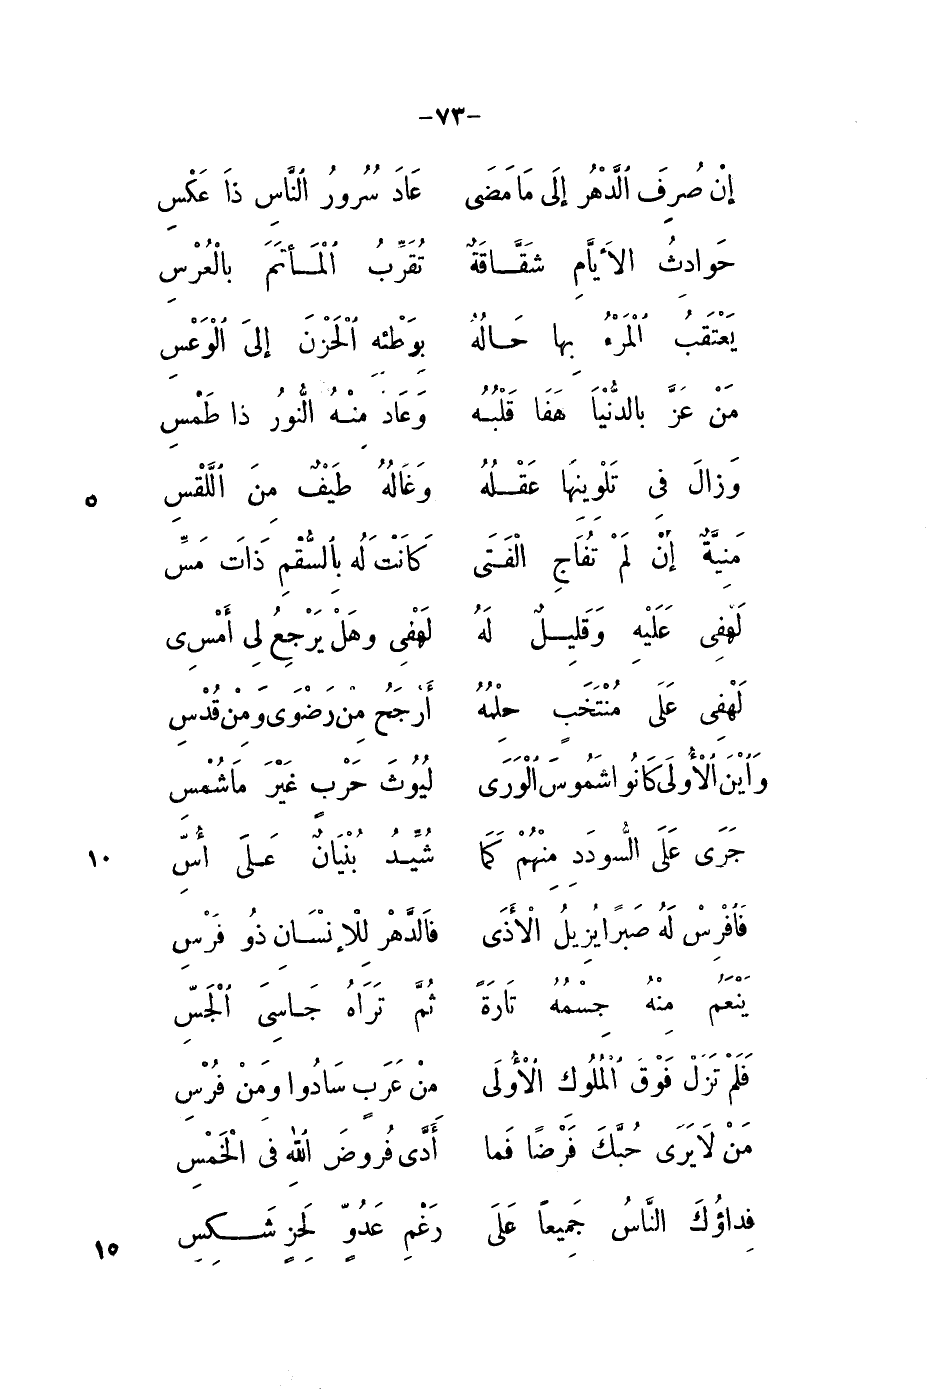 -٧٣-
إنْ صُرِفَ ٱلدَّهْرُ إلَى مَا مَضَى عَادَ سُرُورُ ٱلنَّاسِ ذَا عَكْسِ
حَوادِثُ الأَيَّامِ شقَّاقَةٌ تُقَرِّبُ ٱلْمَأتَمَ بالْعُرْسِ
يَعْتَقبُ ٱلْمَرْءُ بِها حَالُهُ بِوَطْئِهِ ٱلْحَزْنَ إلىَ ٱلْوَعْسِ
مَنْ عَزَّ بالدُّنْيَا هَفَا قَلْبُهُ وَعَادَ مِنْهُ الُّنورُ ذا طَمْسِ
وَزالَ فِى تَلْوِينِهَا عَقْلُهُ وَغَالَهُ طَيْفٌ مِنَ ٱللَّقْسِ ٥
مَنِيَّةٌ إنْ لَمْ تُفَاجِ الْفَتَى كَانَتْ لَه بِٱلسُّقْمِ ذَاتَ مَسِّ
لَهْفِى عَلَيْهِ وَقَلِيلٌ لَهُ لَهْفِى وهَلْ يَرْجِعُ لِى أَمْسِى
لَهْفِى عَلَى مُنْتَخَبٍ حِلْمُهُ أَرْجَحُ مِنْ رَضْوَى وَمِنْ قُدْسِ
وَأَيْنَ ٱلْأُولَى كَانُوا شَمُوسَ ٱلْوَرَى لُيُوثَ حَرْبٍ غَيْرَ مَا شُمْسِ
جَرَى عَلَى السُّودَدِ مِنْهُمْ كَمَا شُيِّدَ بُنْيَانٌ عَلَى أُسِّ ١٠
فَافْرِسْ لَهُ صَبرًا يُزِيلُ الْأَذَى فَالدَّهْرُ لِلْإنْسَانِ ذُو فَرْسِ
يَنْعَمُ مِنْهُ جِسْمُهُ تَارَةً ثُمَّ تَرَاهُ جَاسِىَ ٱلْجَسِّ
فَلَمْ تَزَلْ فَوْقَ ٱلْمُلُوكِ الْأُولَى مِنْ عَرَبٍ سَادُوا وَمِنْ فُرْسِ
مَنْ لَا يَرَى حُبَّكَ فَرْضًا فَما أَدَّى فُروضَ ٱللهِ فى الْخَمْسِ
فِداؤُكَ النَّاسُ جَمِيعاً عَلَى رَغْمِ عَدُوٍّ لَحِزٍ شَكِسِ ١٥